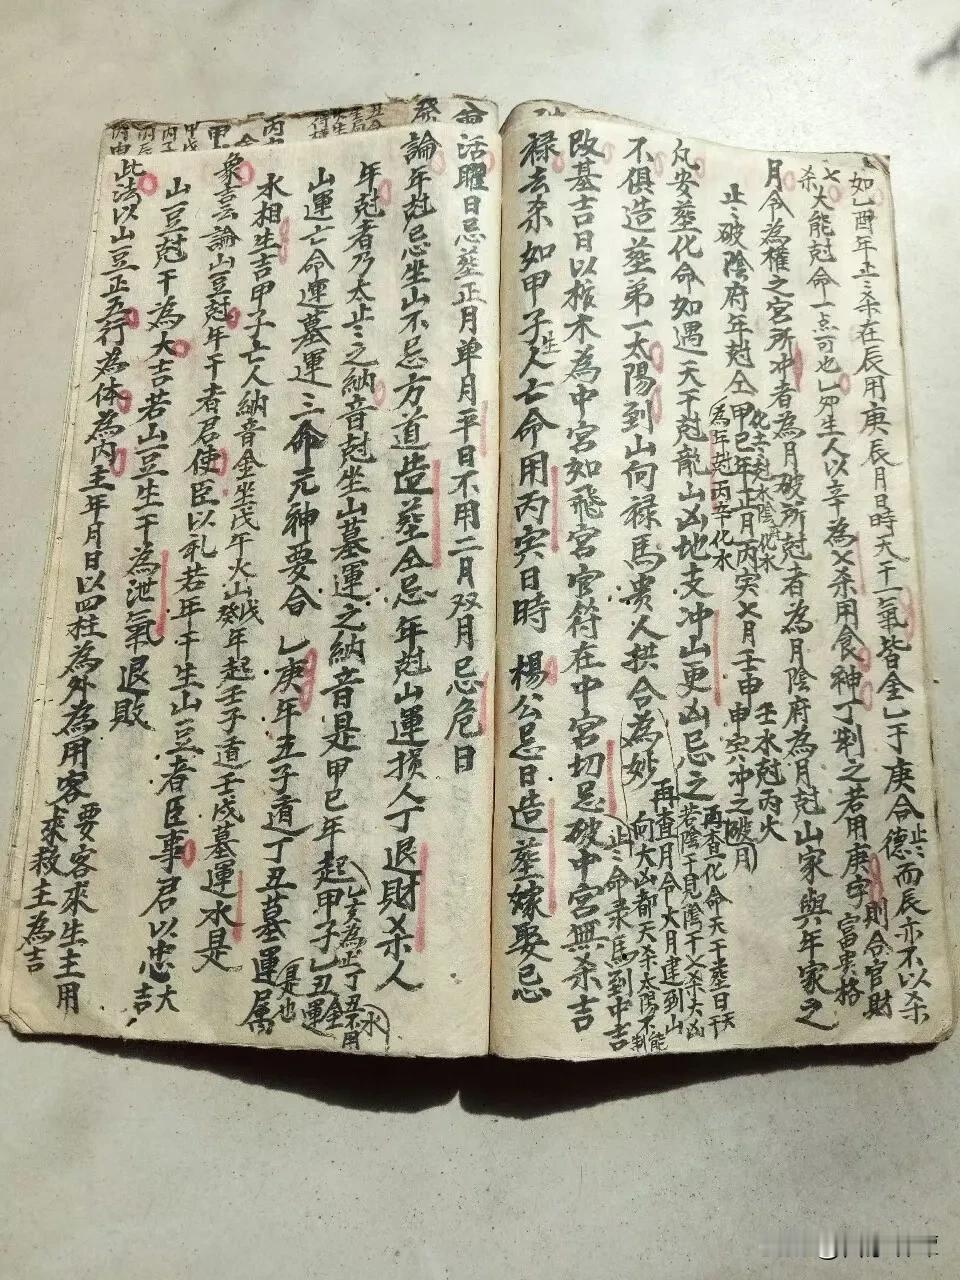 如乙酉年止々杀在辰用庚辰月日時天干一氣皆金乙于庚合德而辰亦不以杀
止々
七杀
火能尅命一点可也乙卯生人以辛為七杀用食神丁制之若用庚字則合官財
富貴格
月令為權之宮所冲者為月破所尅者為月陰府為月尅山家與年家之
止々破陰府年尅仝甲己年正月丙寅七月壬申
化土尅水陰府化水
為年尅丙辛化水
壬水尅丙火
申寅冲之破月
凡安塟化命如遇天干尅龍山凶地支冲山更凶忌之
再查化命天干塟日天干
若陰干見陰干七杀大凶
不俱造塟弟一太陽到山向禄馬貴人拱合為妙
再查月令大月建到山
向大凶都天杀太陽不能制
改基吉日以棺木為中宮如飛宮官符在中宮切忌破中宮無杀吉
止々命录馬到中吉
禄去杀如甲子生人亡命用丙寅日時 楊公忌日造塟嫁娶忌
活曜日忌塟正月单月平日不用二月双月忌危日
論年尅忌坐山不忌方道造塟仝忌年尅山運損人丁退財乂杀人
年尅者乃太止々之納音尅坐山墓運之納音是甲己年起甲子乙丑運
乙亥為止丁丑不用
金 水
山運亡命運墓運 三命元神要合 乙庚年丑子遁丁丑墓運屬
是也
水相生吉甲子亡人納音金坐戊午火山戊癸年起壬子遁壬戌墓運水是
象吉云論山豆尅年干者君使臣以礼若年干生山豆者臣事君以忠大吉
山豆尅干為大吉若山豆生干為泄氣退敗
此法以山豆正五行為体為内主年月日以四柱為外為用客
要客來生主用
來救主為吉